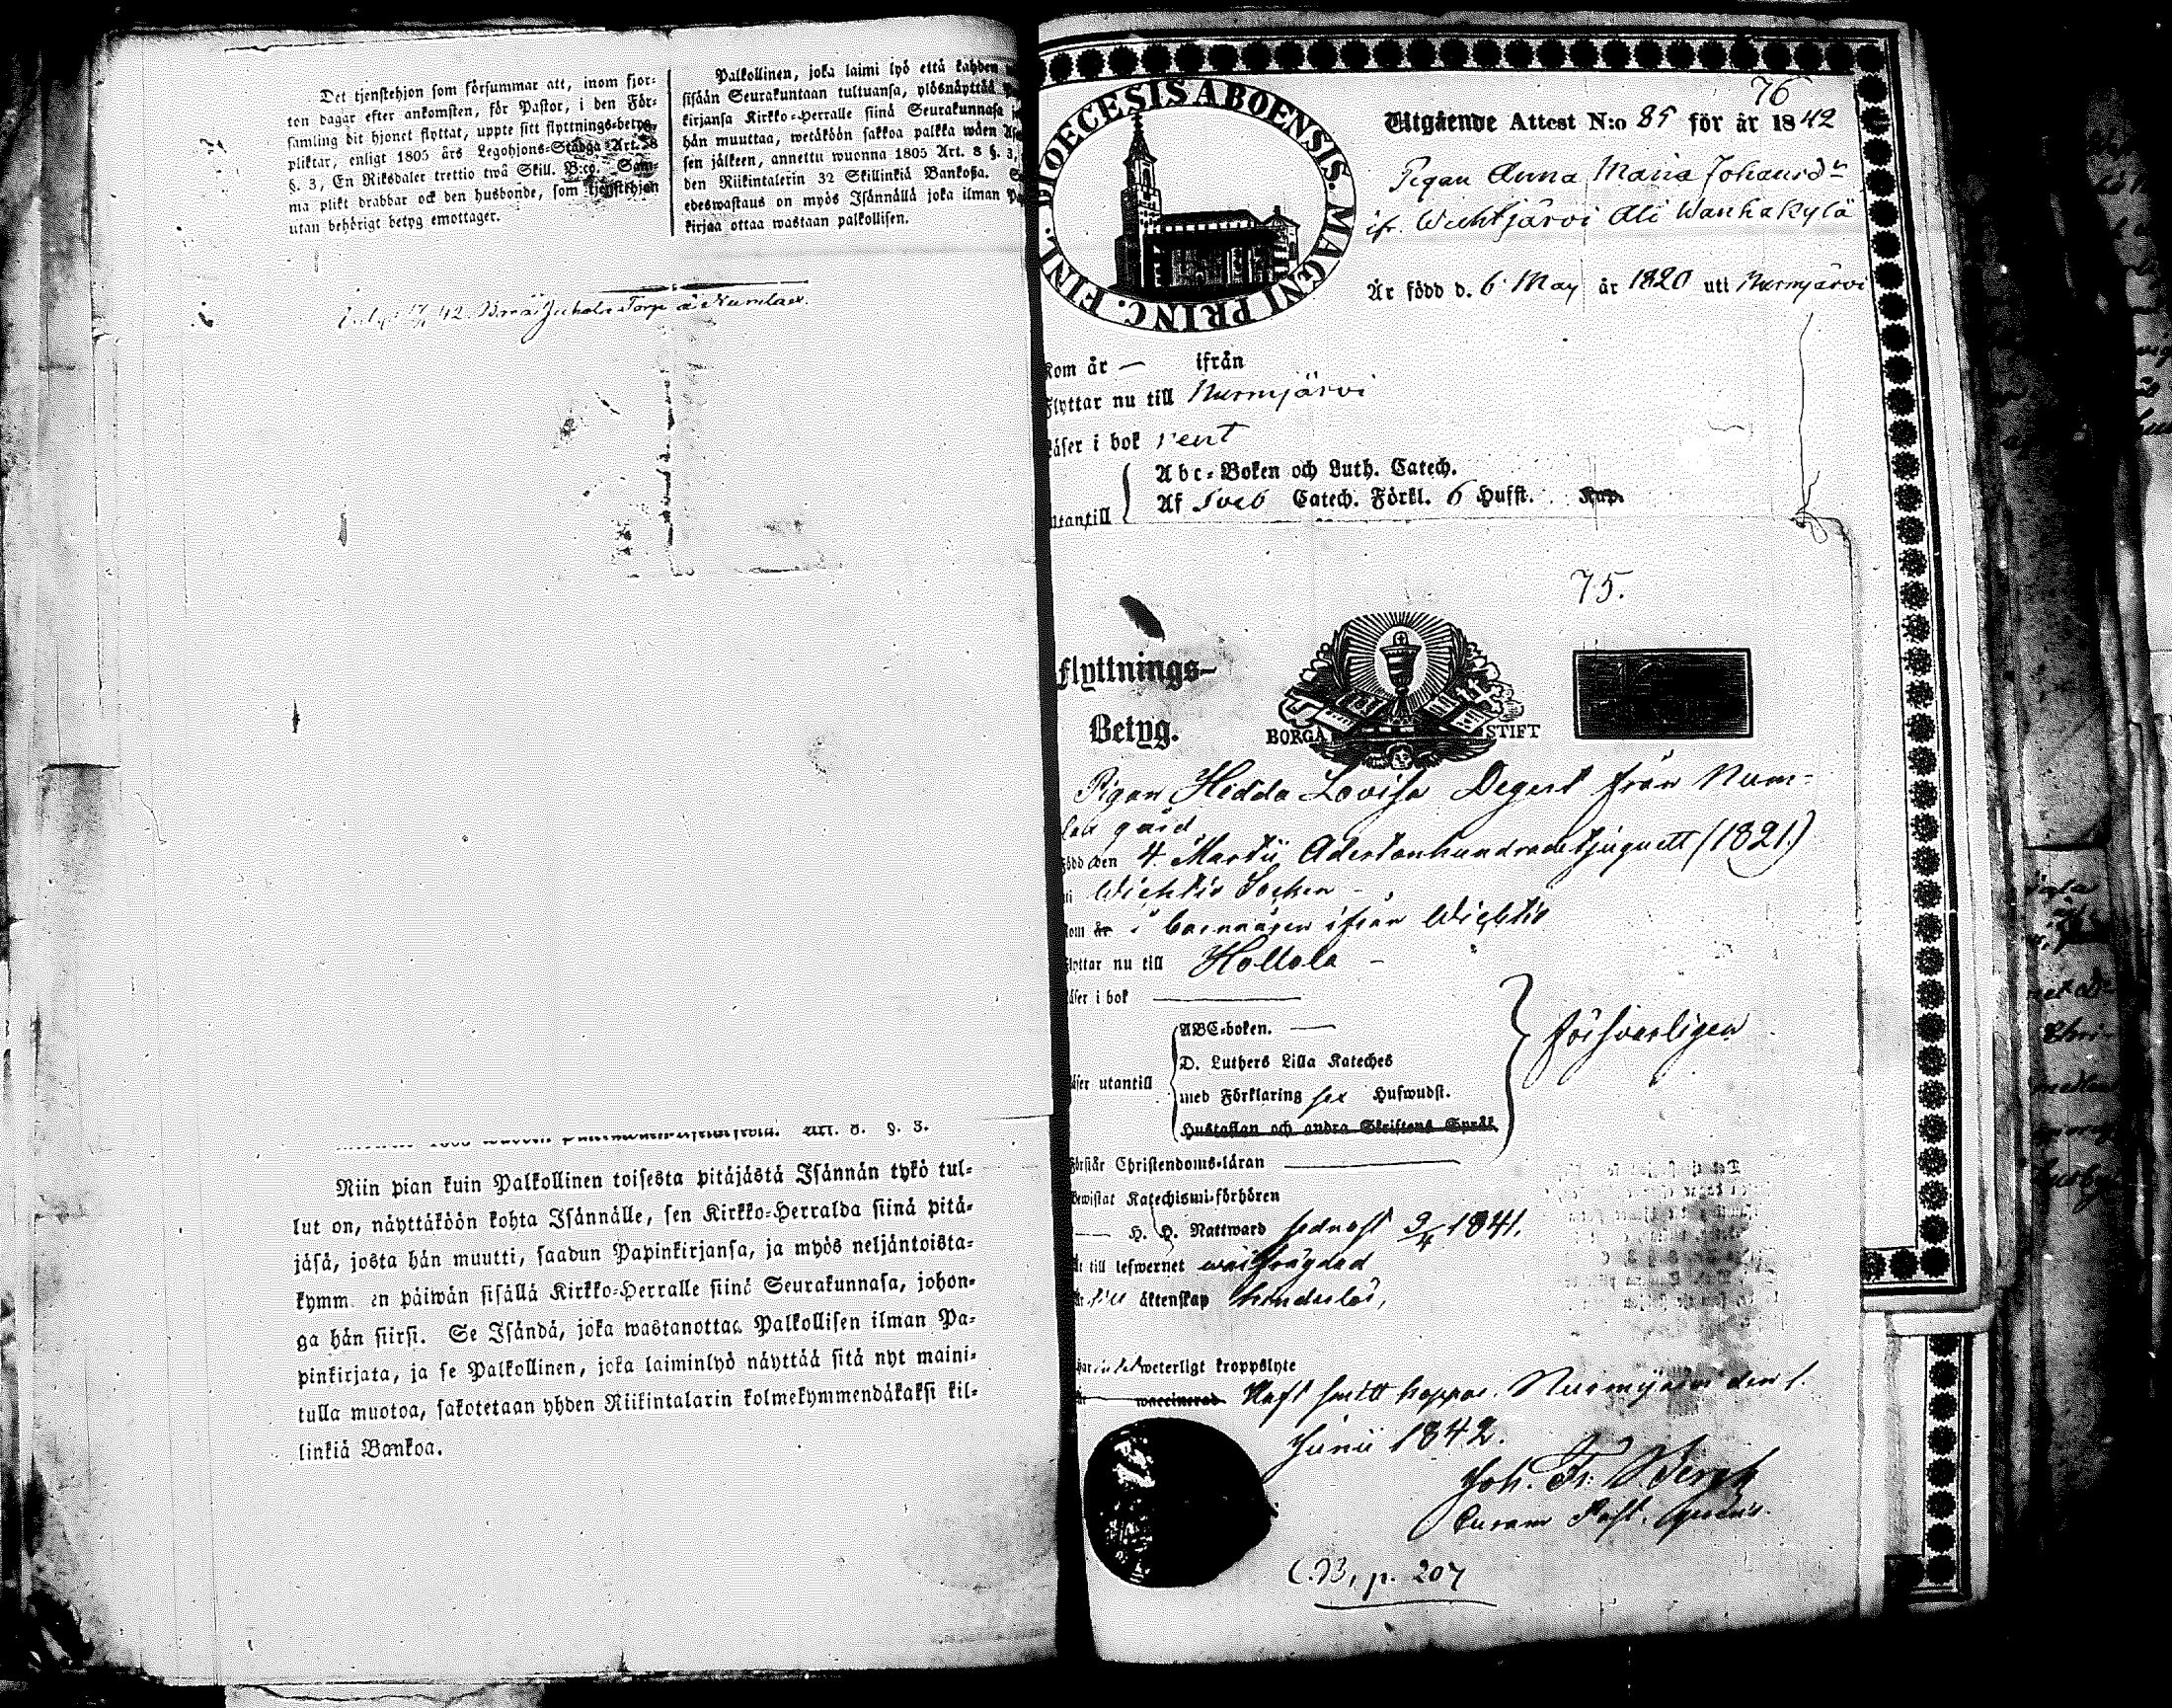 Det tjenstehjon som försummar att, inom fjor-
ton dagar efter ankomsten, för Pastor, i den För-
samling dit hjonet flyttat, uppte sitt flyttnings-betyg,
pliktar, enligt 1805 års Legohjons-Stadga Art. 8
§. 3, En Riksdaler trettio twå Skill. B:co. Sam-
ma plikt drabbar ock den husbonde, som tjenstehjon
utan behörigt betyg emottager.
Palkollinen, joka laimi lyö että kahden
sisään Seurakuntaan tultuansa, ylösnäyttää
kirjansa Kirkko-Herralle siinä Seurakunnasa
hän muuttaa, wetäköön sakkoa palkka wäen
sen jälkeen, annettu wuonna 1805 Art. 8 §. 3,
den Riikintalerin 32 Skillinkiä Bankosa.
edeswastaus on myös Isännällä joka ilman
kirjaa ottaa wastaan palkollisen.
Art. 8. §. 3.
Niin pian kuin Palkollinen toisesta pitäjästä Isännän tykö tul-
lut on, näyttäköön kohta Isännälle, sen Kirkko-Herralda siinä pitä-
jäsä, josta hän muutti, saadun Papinkirjansa, ja myös neljäntoista-
kymm en päiwän sisällä Kirkko-Herralle siinä Seurakunnasa, johon-
ga hän siirsi. Se Isändä, joka wastanottaa Palkollisen ilman Pa-
pinkirjata, ja se Palkollinen, joka laiminlyö näyttää sitä nyt maini-
tulla muotoa, sakotetaan yhden Riikintalarin kolmekymmendäkaksi kil-
linkiä Bankoa.
76
DIOECESIS ABOENSIS. MAGNI PRINC. FINL.
Utgående Attest N:o 85 för år 1842
Pigan Anna Maria Johansdr
ifr. Wichtjärvi Ali Wanhakylä
Är född d. 6 May år 1820 uti Nurmjärvi
Kom år — ifrån
Flyttar nu till Nurmjärvi
Läser i bok rent
Abc-Boken och Luth. Catech.
Af Sveb Catech. Förkl. 6 Hufst. Kap.
Utantill
75.
Flyttnings-
Betyg.
BORGA STIFT
Pigan Hedda Lovisa Degert från Num-
lax gård
Född den 4 Martii Adertonhundradetjuguett (1821)
uti Wichtis Socken
Kom år i barnaåren ifrån Wichtis
Flyttar nu till Hollola
Läser i bok
ABC-boken.
D. Luthers Lilla Kateches
Läser utantill
med Förklaring sex Hufwudst.
Hustaflan och andra Skriftens Språk
försvarligen
Förstår Christendoms-läran
Bewistat Katechismi-förhören
H. H. Nattward sednast 9/4 1841.
Är till lefwernet wälfrägdad
Är till äktenskap hinderlös,
weterligt kroppslyte
waccinerad Haft smittkoppor. Nurmijärvi den 1.
Junii 1842.
C.B, p. 207